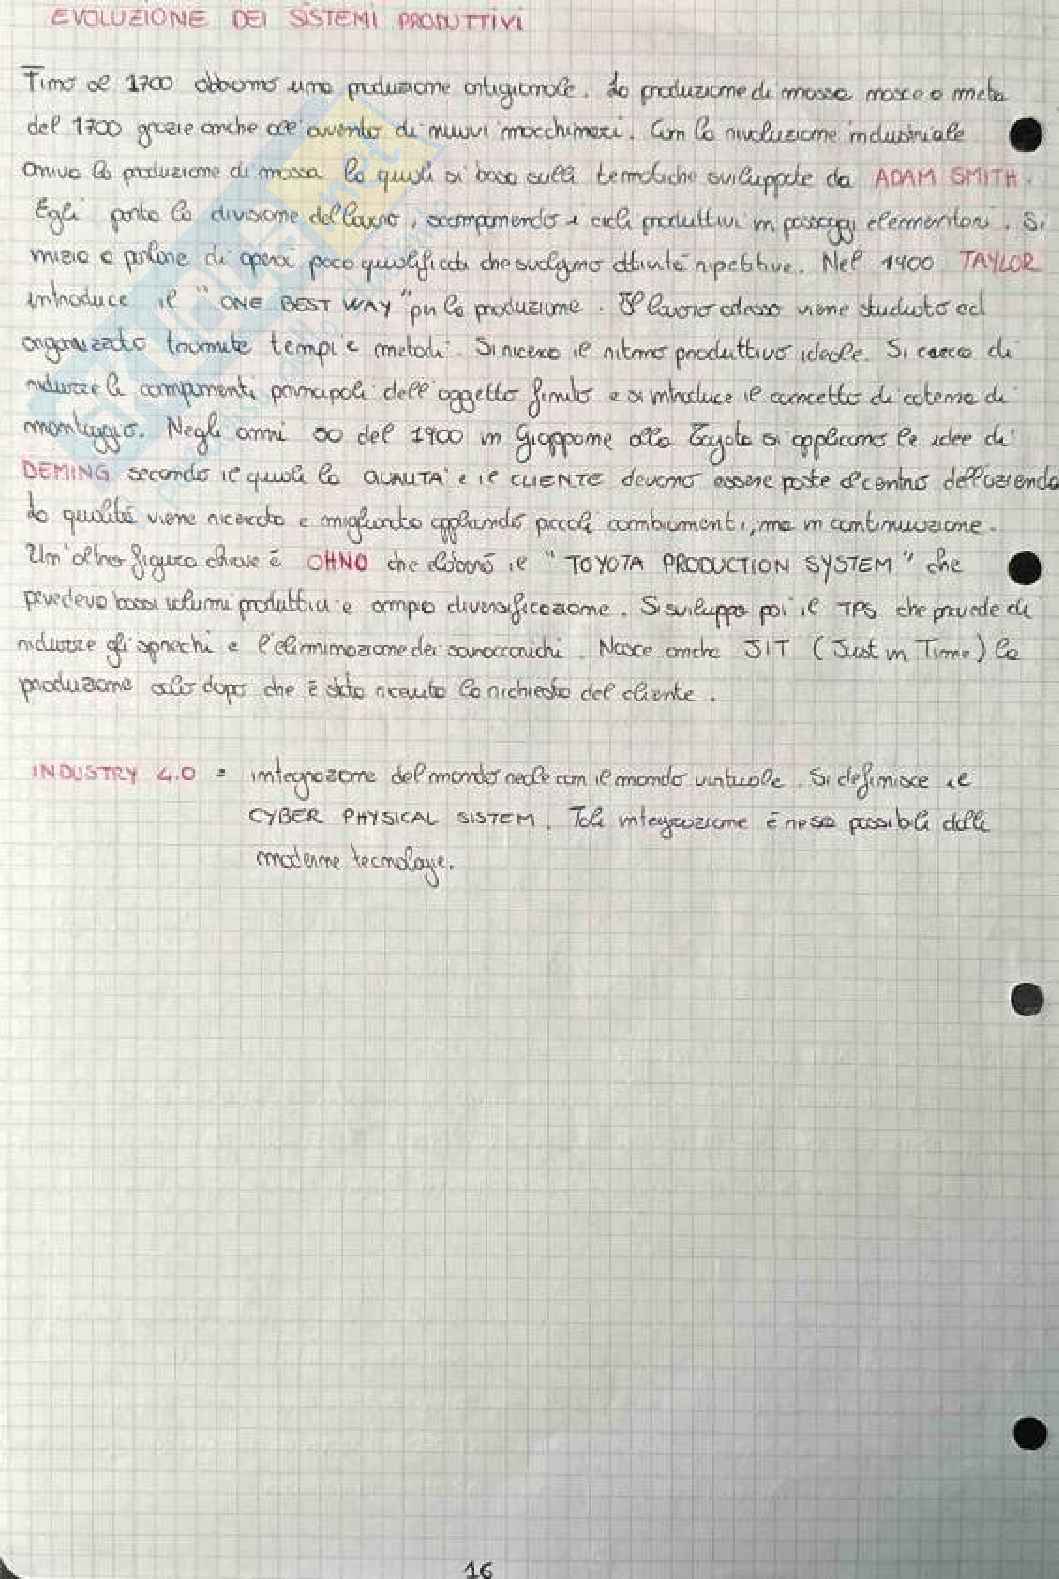 EVOLUZIONE DEI SISTEMI PRODUTTIVI
Fino al 1700 abbiamo una produzione artigianale. La produzione di massa nasce a metà
del 1700 grazie anche all'avvento di nuovi macchinari. Con la rivoluzione industriale
arriva la produzione di massa la quale si basa sulle tematiche sviluppate da ADAM SMITH.
Egli porta la divisione del lavoro, scomponendo i cicli produttivi in passaggi elementari. Si
inizia a parlare di operai poco qualificati che svolgono attività ripetitive. Nel 1900 TAYLOR
introduce il "ONE BEST WAY" per la produzione. Il lavoro adesso viene studiato ed
organizzato tramite tempi e metodi. Si ricerca il ritmo produttivo ideale. Si cerca di
ridurre le componenti principali dell'oggetto finito e si introduce il concetto di catena di
montaggio. Negli anni 50 del 1900 in Giappone alla Toyota si applicano le idee di
DEMING secondo il quale la QUALITA' e il CLIENTE devono essere poste al centro dell'azienda
La qualità viene ricercata e migliorata applicando piccoli cambiamenti, ma in continuazione.
Un'altra figura chiave è OHNO che elaborò il "TOYOTA PRODUCTION SYSTEM" che
prevedeva bassi volumi produttivi e ampia diversificazione. Si sviluppa poi il TPS che prevede di
ridurre gli sprechi e l'eliminazione dei sovraccarichi. Nasce anche JIT (Just in Time) la
produzione solo dopo che è stata ricevuta la richiesta del cliente.
INDUSTRY 4.0 = integrazione del mondo reale con il mondo virtuale. Si definisce il
CYBER PHYSICAL SISTEM. Tale integrazione è resa possibile dalle
moderne tecnologie.
16